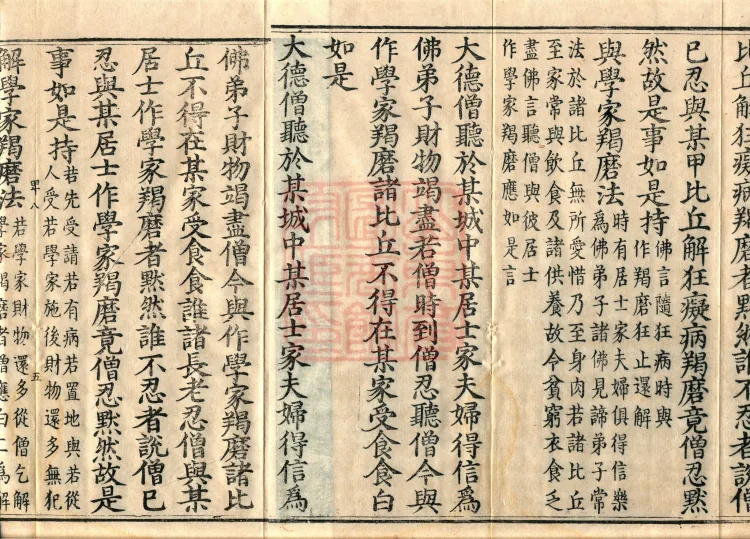 比丘解狂癡病羯磨者默然誰不忍者說僧
已忍與某甲比丘解狂癡病羯磨竟僧忍默
然故是事如是持
佛言隨狂病時與
作羯磨狂止還解
與學家羯磨法
時有居士家夫婦俱得信樂
為佛弟子諸佛見諦弟子常
法於諸比丘無所愛惜乃至身肉若諸比丘
至家常與飲食及諸供養故令貧窮衣食乏
盡佛言聽僧與彼居士
作學家羯磨應如是言
大德僧聽於某城中某居士家夫婦得信為
佛弟子財物竭盡若僧時到僧忍聽僧今與
作學家羯磨諸比丘不得在某家受食食白
如是
大德僧聽於某城中某居士家夫婦得信為
佛弟子財物竭盡僧今與作學家羯磨諸比
丘不得在某家受食食誰諸長老忍僧與某
居士作學家羯磨者默然誰不忍者說僧已
忍與某居士作學家羯磨竟僧忍默然故是
事如是持
若先受請若有病若置地與若從
人受若學家施後財物還多無犯
八 五
解學家羯磨法
若學家財物還多從僧乞解
學家羯磨者僧應白二為解